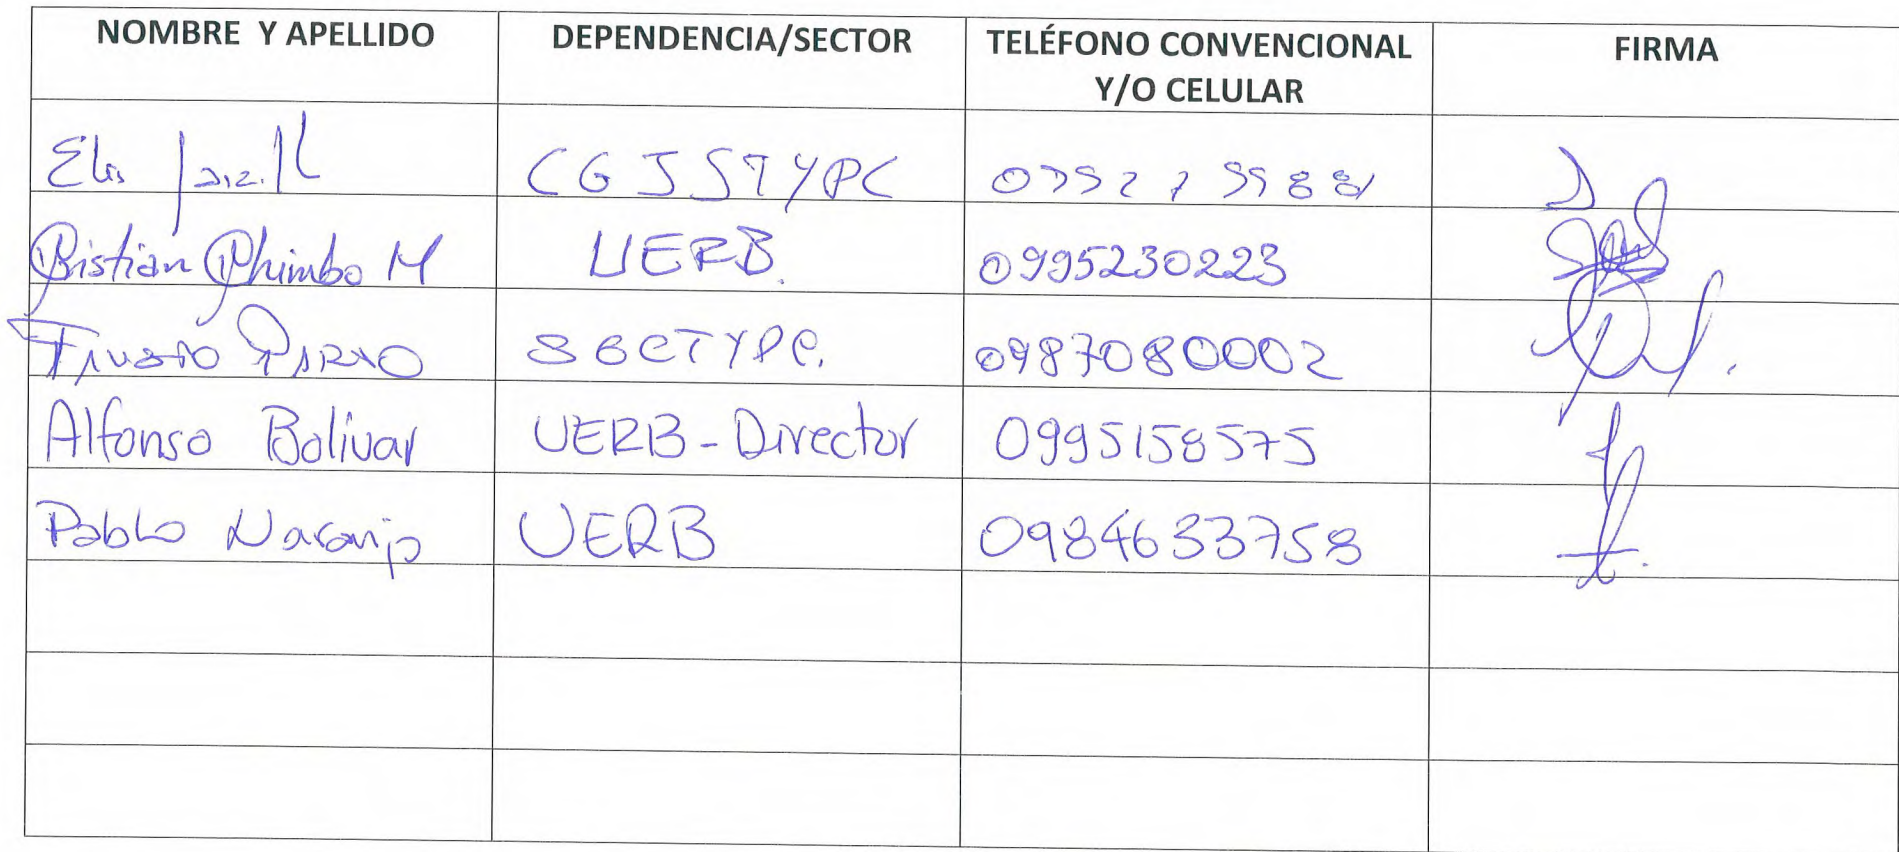 NOMBRE Y APELLIDO DEPENDENCIA/SECTOR TELÉFONO CONVENCIONAL Y/O CELULAR FIRMA
CGJSTYPC
Cristian Chimbo M UERB. 0995230223
Fausto Pardo SGCTYPC. 0987080002
Alfonso Bolivar UERB-Director 0995158575
Pablo Naranjo UERB 0984633758